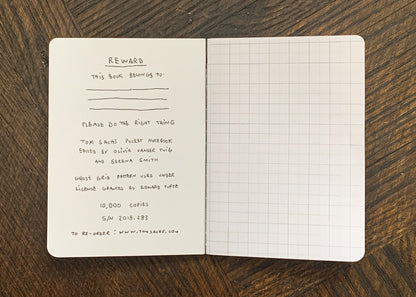 REWARD
THIS BOOK BELONGS TO:
PLEASE DO THE RIGHT THING
TOM SACHS POCKET NOTEBOOK
EDITED BY OLIVIA VANDER TUIG
AND SERENA SMITH
GHOST GRID PATTERN USED UNDER
LICENSE GRANTED BY EDWARD TUFTE
10,000 COPIES
S/N 2018.283
TO RE-ORDER: WWW.TOMSACHS.COM